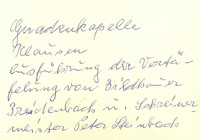 Gnadenkapelle
Klausen
Ausführung der Vertä-
felung von Bildhauer
Breidenbach u. Schreiner
meister Peter Steinbach